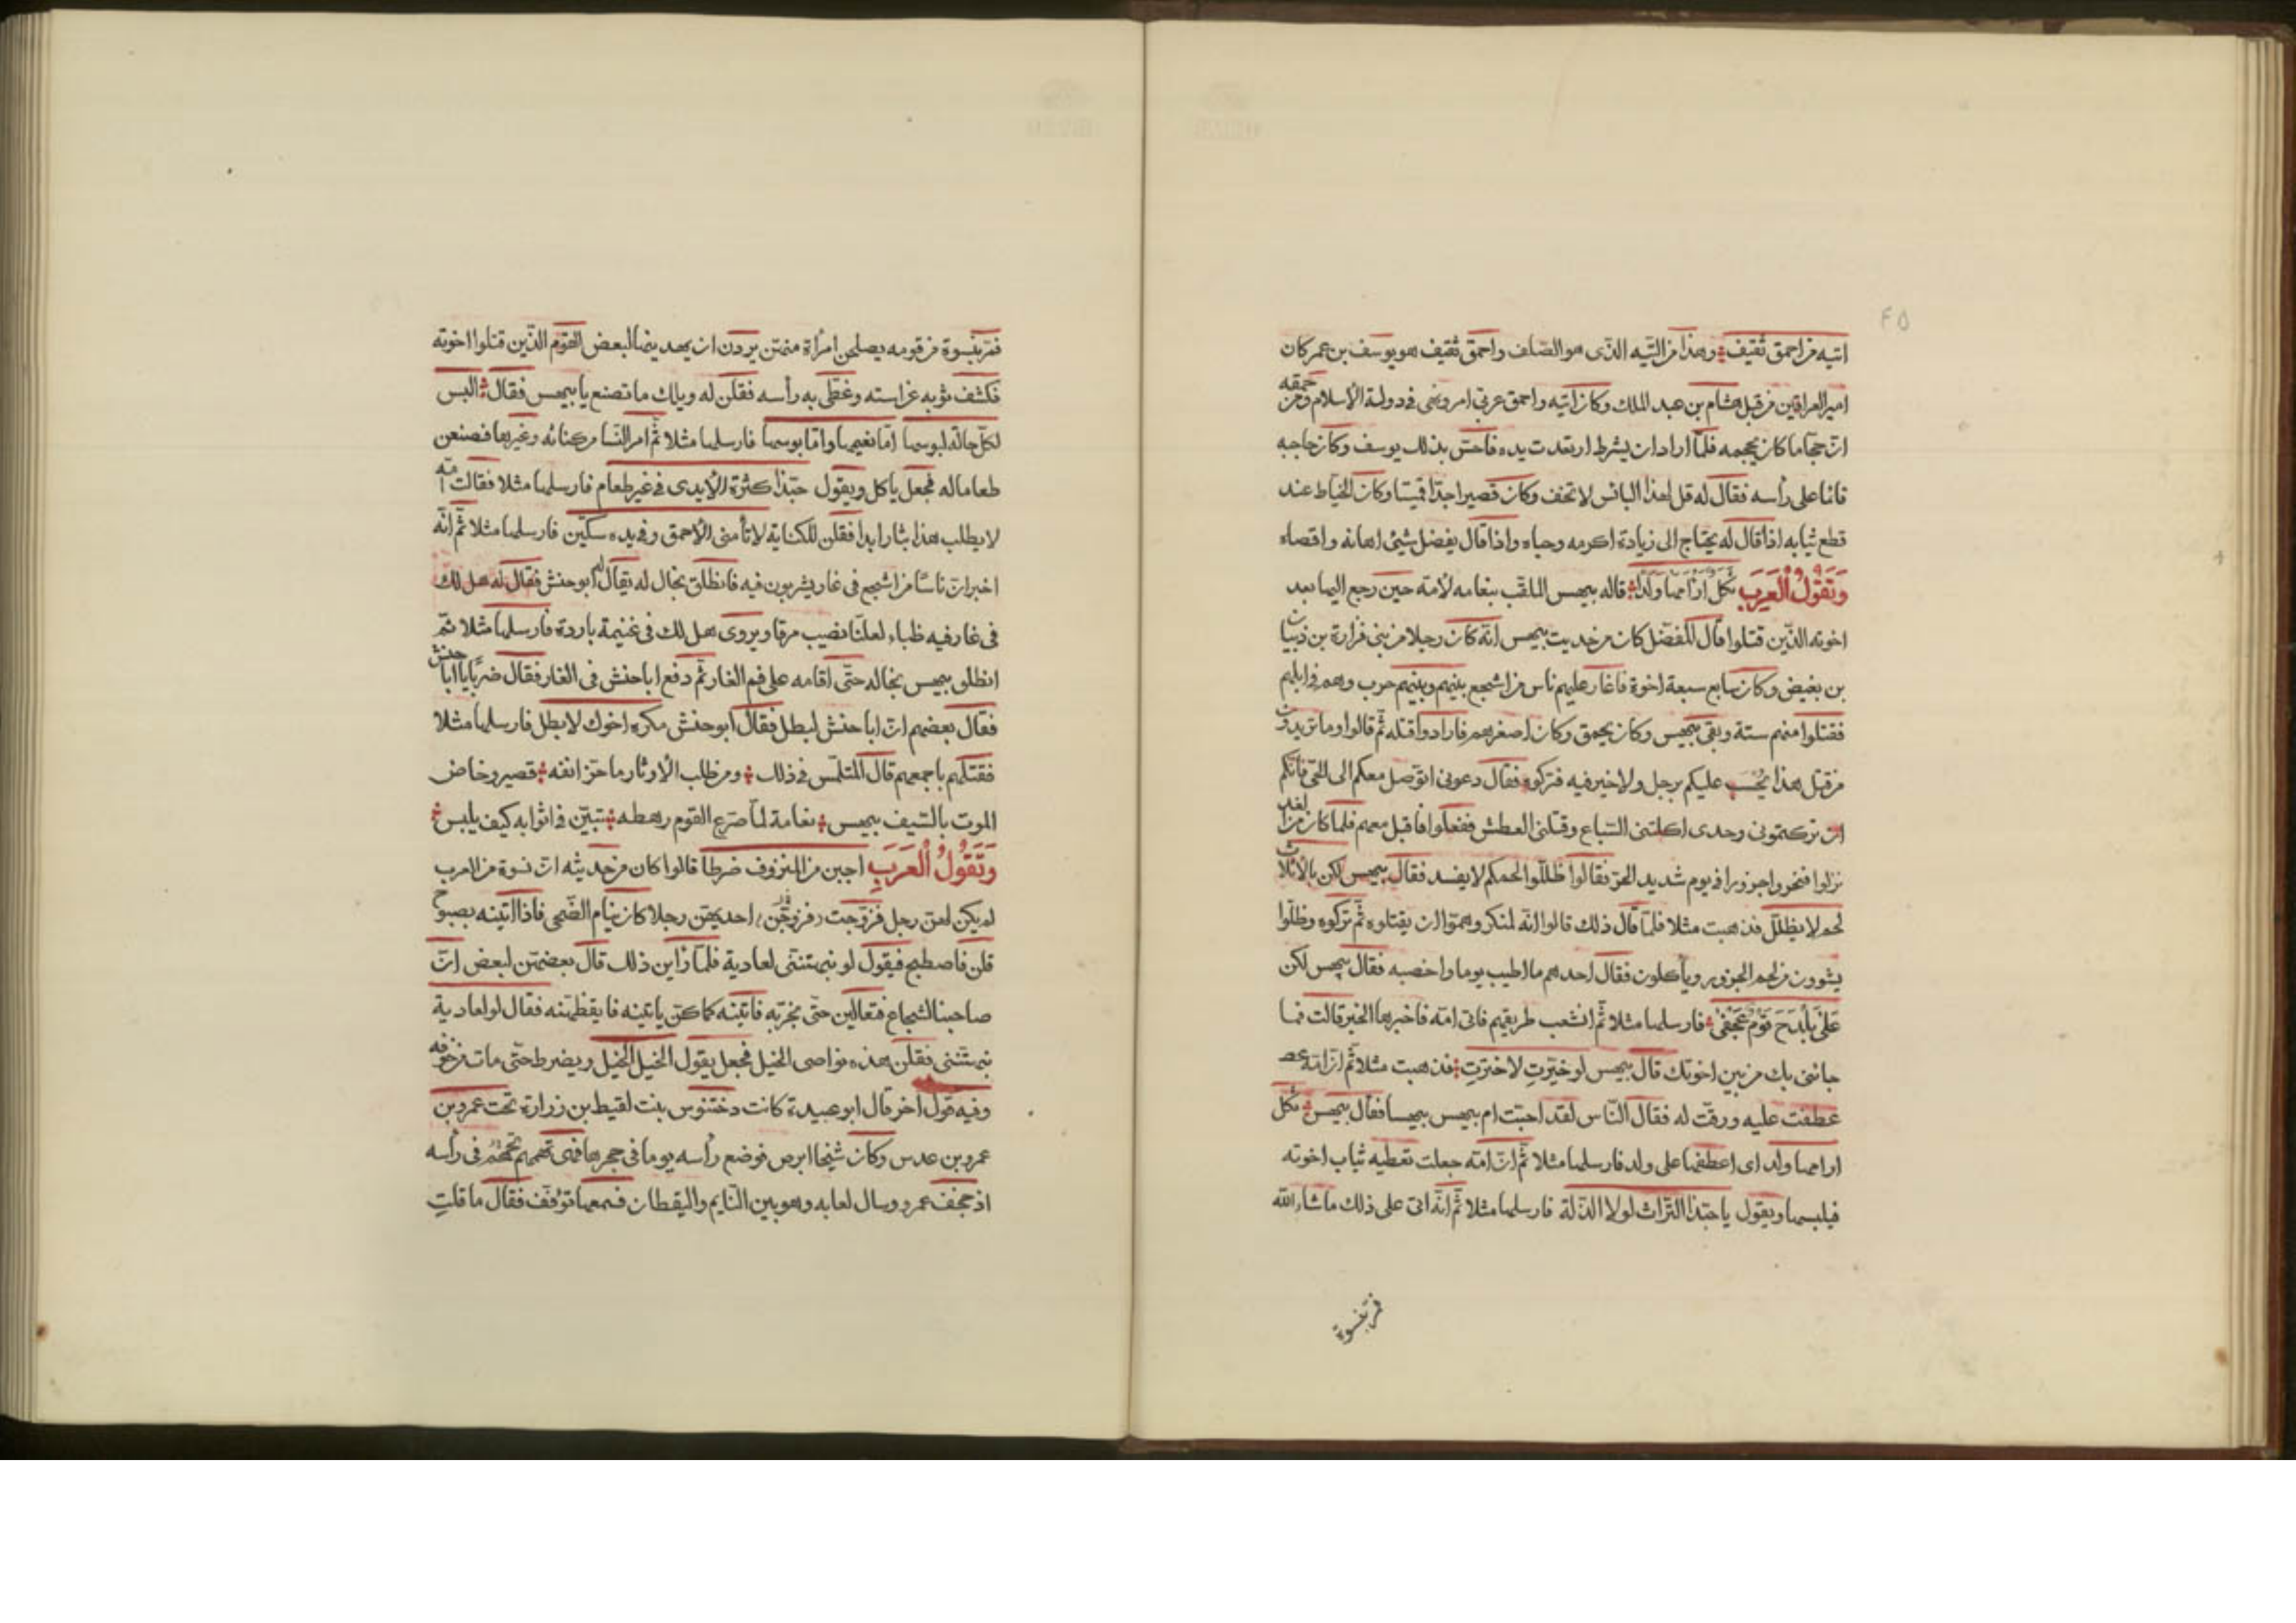 ٤٥
اتيه من احمق ثقيف وهذا من التيه الذى هو الصلف واحمق ثقيف هو يوسف بن عمر كان
امير العراقين من قبل هشام بن عبد الملك وكان اتيه واحمق عربى امر ونهى فى دولة الاسلام ومن حمقه
ان حجاما كان يحجمه فلما اراد ان يشرط ارتعدت يده فاحس بذلك يوسف وكان حاجبه
قائما على رأسه فقال له قل لهذا البائس لا تخف وكان قصيرا جدا قميئا وكان الخياط عند
قطع ثيابه اذا قال له يحتاج الى زيادة اكرمه وحباه واذا قال يفضل شيئ اهانه واقصاه
وَتَقُولُ الْعَرَبِ ثكل ارأمها ولدا قاله بيهس الملقب بنعامه لامّه حين رجع اليها بعد
اخوته الذّين قتلوا قال المفضل كان من حديث بيهس انّه كان رجلا من بنى فزارة بن ذبيان
بن بغيض وكان سابع سبعة اخوة فاغار عليهم ناس من اشجع بينهم وبينهم حرب وهم فى ابلهم
فقتلوا منهم ستة وبقى بيهس وكان يحمق وكان اصغرهم فارادوا قتله ثم قالوا وما تريدون
من قتل هذا يُحْسَب عليكم برجل ولا خير فيه فتركوه فقال دعونى اتوصل معكم الى الحى فانكم
ان تركتمونى وحدى اكلتنى السّباع وقتلنى العطش ففعلوا فاقبل معهم فلما كان من الغد
نزلوا فنحروا جزورا فى يوم شديد الحرّ فقالوا ظللّوا لحمكم لا يفسد فقال بيهس لكن بالاثلاث
لحم لا يظلّل فذهبت مثلا فلمّا قال ذلك قالوا انّه لمنكر وهمّوا ان يقتلوه ثم تركوه وظلّوا
يشوون من لحم الجزور ويأكلون فقال احدهم ما اطيب يوما واخصبه فقال بيهس لكن
عَلَى بَلْدَح قَوْم عَجْفَى فارسلها مثلا ثم انشعب طريقهم فاتى امّه فاخبرها الخبر قالت فما
جائنى بك من بين اخوتك قال بيهس لو خيّرتِ لاخترتِ فذهبت مثلا ثم ان امّه
عطفت عليه ورقّت له فقال النّاس لقد احبّت ام بيهس بيهسا فقال بيهس ثكل
ارامها ولد اى اعطفها على ولد فارسلها مثلا ثم ان امّه جعلت تعطيه ثياب اخوته
فيلبسها ويقول يا حبّذا التّراث لولا الذلّة فارسلها مثلا ثم انّه اتى على ذلك ما شاء الله
فمر بنسوة
فمر بنسوة من قومه يصلحن امرأة منهن يردن ان يهدينها لبعض القوم الذّين قتلوا اخوته
فكشف ثوبه عن استه وغطّى به رأسه فقلن له ويلك ما تصنع يا بيهس فقال البس
لكل حالة لبوسها امّا نعيمها وامّا بوسها فارسلها مثلا ثم امر النسا من كنانه وغيرها فصنعن
طعاما له فجعل ياكل ويقول حبّذا كثرة الايدى فى غير طعام فارسلها مثلا فقالت امّه
لا يطلب هذا بثار ابدا فقلن للكنانية لا تأمنى الاحمق وفى يده سكّين فارسلها مثلا ثم انّه
اخبر ان ناسًا من اشجع فى غار يشربون فيه فانطلق بخال له يقال له ابو حنش فقال له هل لك
فى غار فيه ظباء لعلّنا نصيب مرقا ويروى هل لك فى غنيمة باردة فارسلها مثلا ثم
انطلق بيهس بخاله حتّى اقامه على فم الغار ثم دفع ابا حنش فى الغار فقال ضربًا يا ابا حنش
فقال بعضهم ان ابا حنش لبطل فقال ابو حنش مكره اخوك لا بطل فارسلها مثلا
فقتلهم باجمعهم قال المتلمّس فى ذلك ومن طلب الاوتار ما حزّ انفه قصير وخاض
الموت بالسّيف بيهس نعامة لمّا صرّع القوم رهطه تبيّن فى اثوابه كيف يلبس
وَتَقُولُ الْعَرَبِ اجبن من المنزوف ضرطا قالوا كان من حديثه ان نسوة من العرب
لم يكن لهن رجل فزوّجت فزوجن احديهنّ رجلا كان ينام الضّحى فاذا اتينه بصبوح
قلن فاصطبح فيقول لو نبهتننى لعادية فلمّا رأين ذلك قال بعضهن لبعض ان
صاحبنا لشجاع فتعالين حتّى نجرّبه فاتينه كما كنّ ياتينه فايقظنه فقال لو لعادية
نبهتننى فقلن هذه نواصى الخيل فجعل يقول الخيل الخيل ويضرط حتّى مات
وفيه قول اخر قال ابو عبيدة كانت دختنوس بنت لقيط بن زرارة تحت عمرو بن
عمرو بن عدس وكان شيخا ابرص فوضع رأسه يوما فى حجرها فهى تهمهم فى رأسه
اذ جخف عمرو وسال لعابه وهو بين النّايم واليقظان فسمعها تؤفّف فقال ما قلتِ